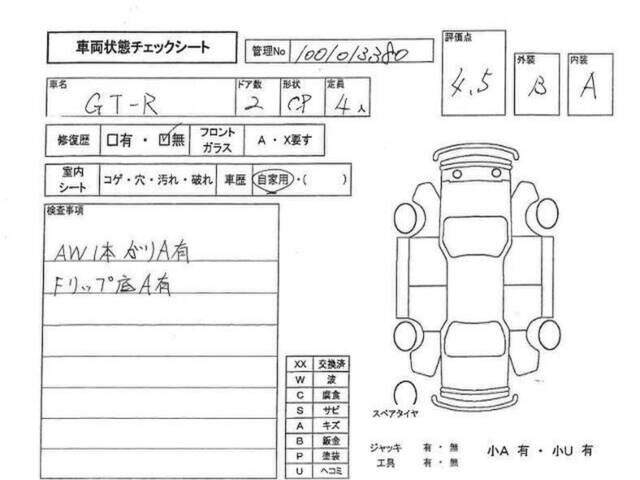 車両状態チェックシート
管理No 1001013380
評価点 4.5
外装 B
内装 A
車名 GT-R
ドア数 2
形状 CP
定員 4人
修復歴 □有・☑無
フロントガラス A・X要す
室内シート コゲ・穴・汚れ・破れ
車歴 自家用・( )
検査事項
AW1本ガリA有
Fリップ底A有
XX 交換済
W 波
C 腐食
S サビ
A キズ
B 鈑金
P 塗装
U ヘコミ
スペアタイヤ
ジャッキ 有・無
工具 有・無
小A 有・小U 有